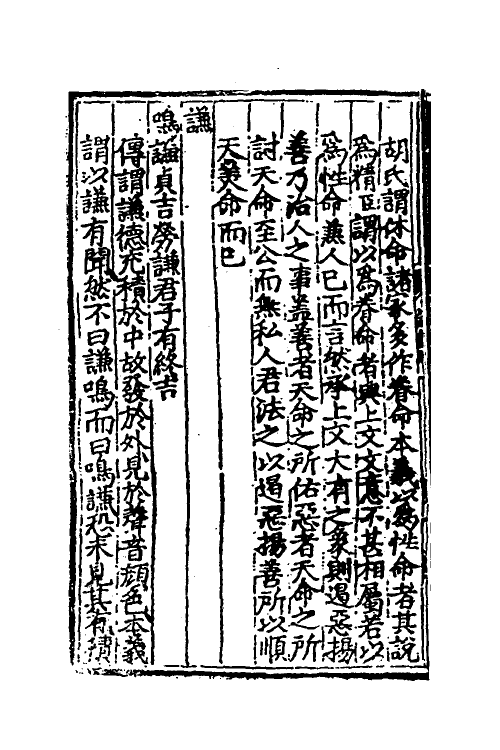 胡氏謂休命諸家多作眷命本義以為性命者其說
為精臣謂以為眷命者與上文文意不甚相屬若以
為性命兼人已而言然承上文大有之象則遏惡揚
善乃治人之事葢善者天命之所佑惡者天命之所
討天命至公而無私人君法之以遏惡揚善所以順
天命而已
謙
鳴謙貞吉勞謙君子有終吉
傳謂謙德充積於中故發於外見於聲音顔色本義
謂以謙有聞然不曰謙鳴而曰鳴謙殆未見其有積